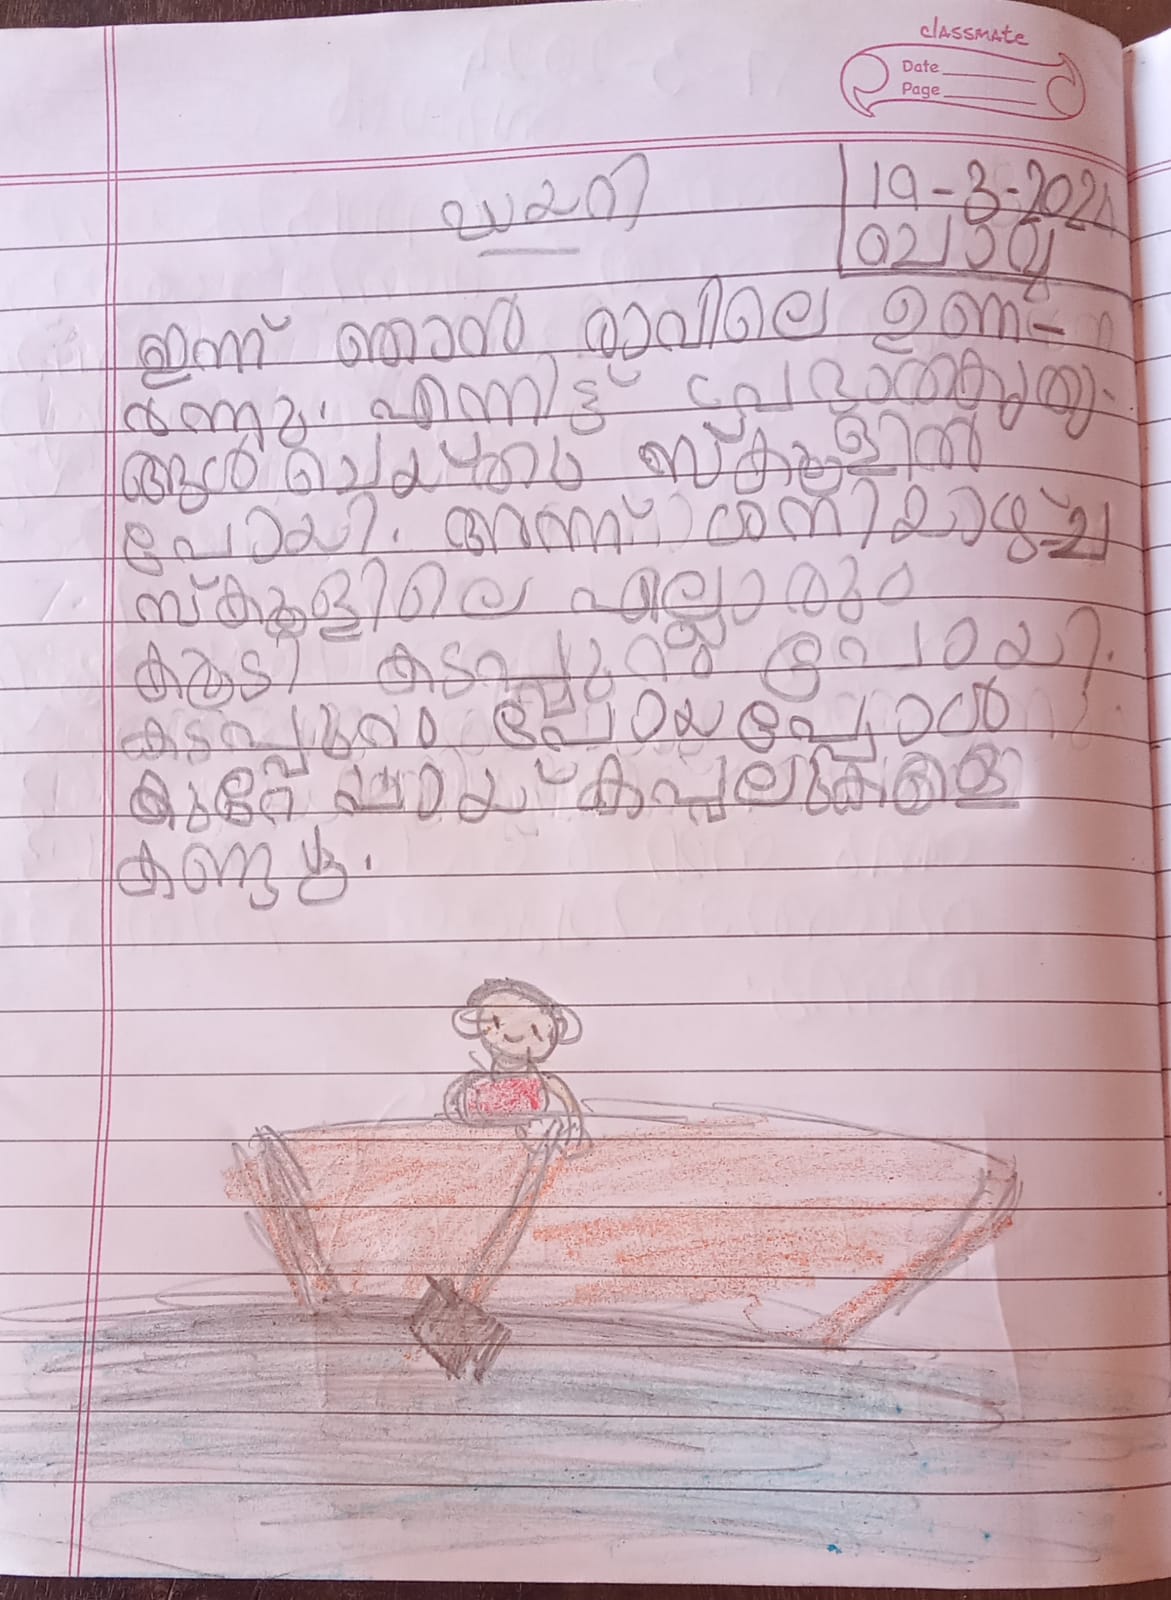 classmate
Date
Page
ഡയറി
19-3-202
ചൊവ്വ
ഇന്ന് ഞാൻ രാവിലെ ഉണ-
ർന്നു. എന്നിട്ട് പ്രഭാതകൃത്യ-
ങ്ങൾ ചെയ്തു സ്കൂളിൽ
പോയി. അന്ന് ശനിയാഴ്ച
സ്കൂളിലെ എല്ലാരും
കൂടി കടപ്പുറം പോയി.
കടപ്പുറം പോയപ്പോൾ
കുറേ പായ് കപ്പലുകളെ
കണ്ടു.